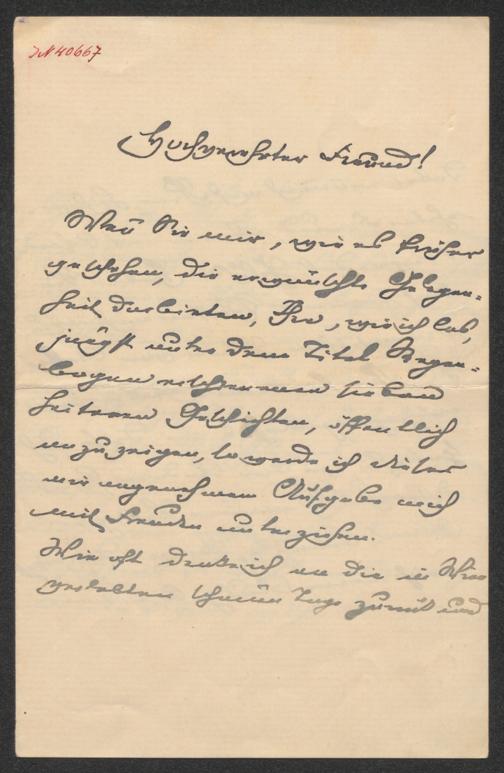 IN 40667
Hochgeehrter Freund!
Wenn Sie mir, wie es früher
geschehen, die erwünschte Gelegen-
heit darbieten, Ihre, wie ich las,
jüngst unter dem Titel Regen-
bogen erschienenen sieben
heiteren Geschichten, öffentlich
anzuzeigen, so werde ich dieser
mir angenehmen Aufgabe mich
mit Freuden unterziehen.
Wie oft denke ich an die in Wien
schönen Tage zurück und